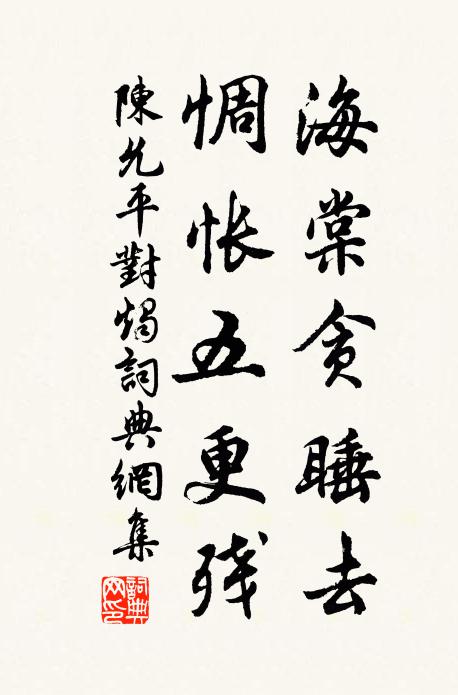 海棠贪睡去
惆怅五更残
陳允平對燭詞典網集
詞典網印